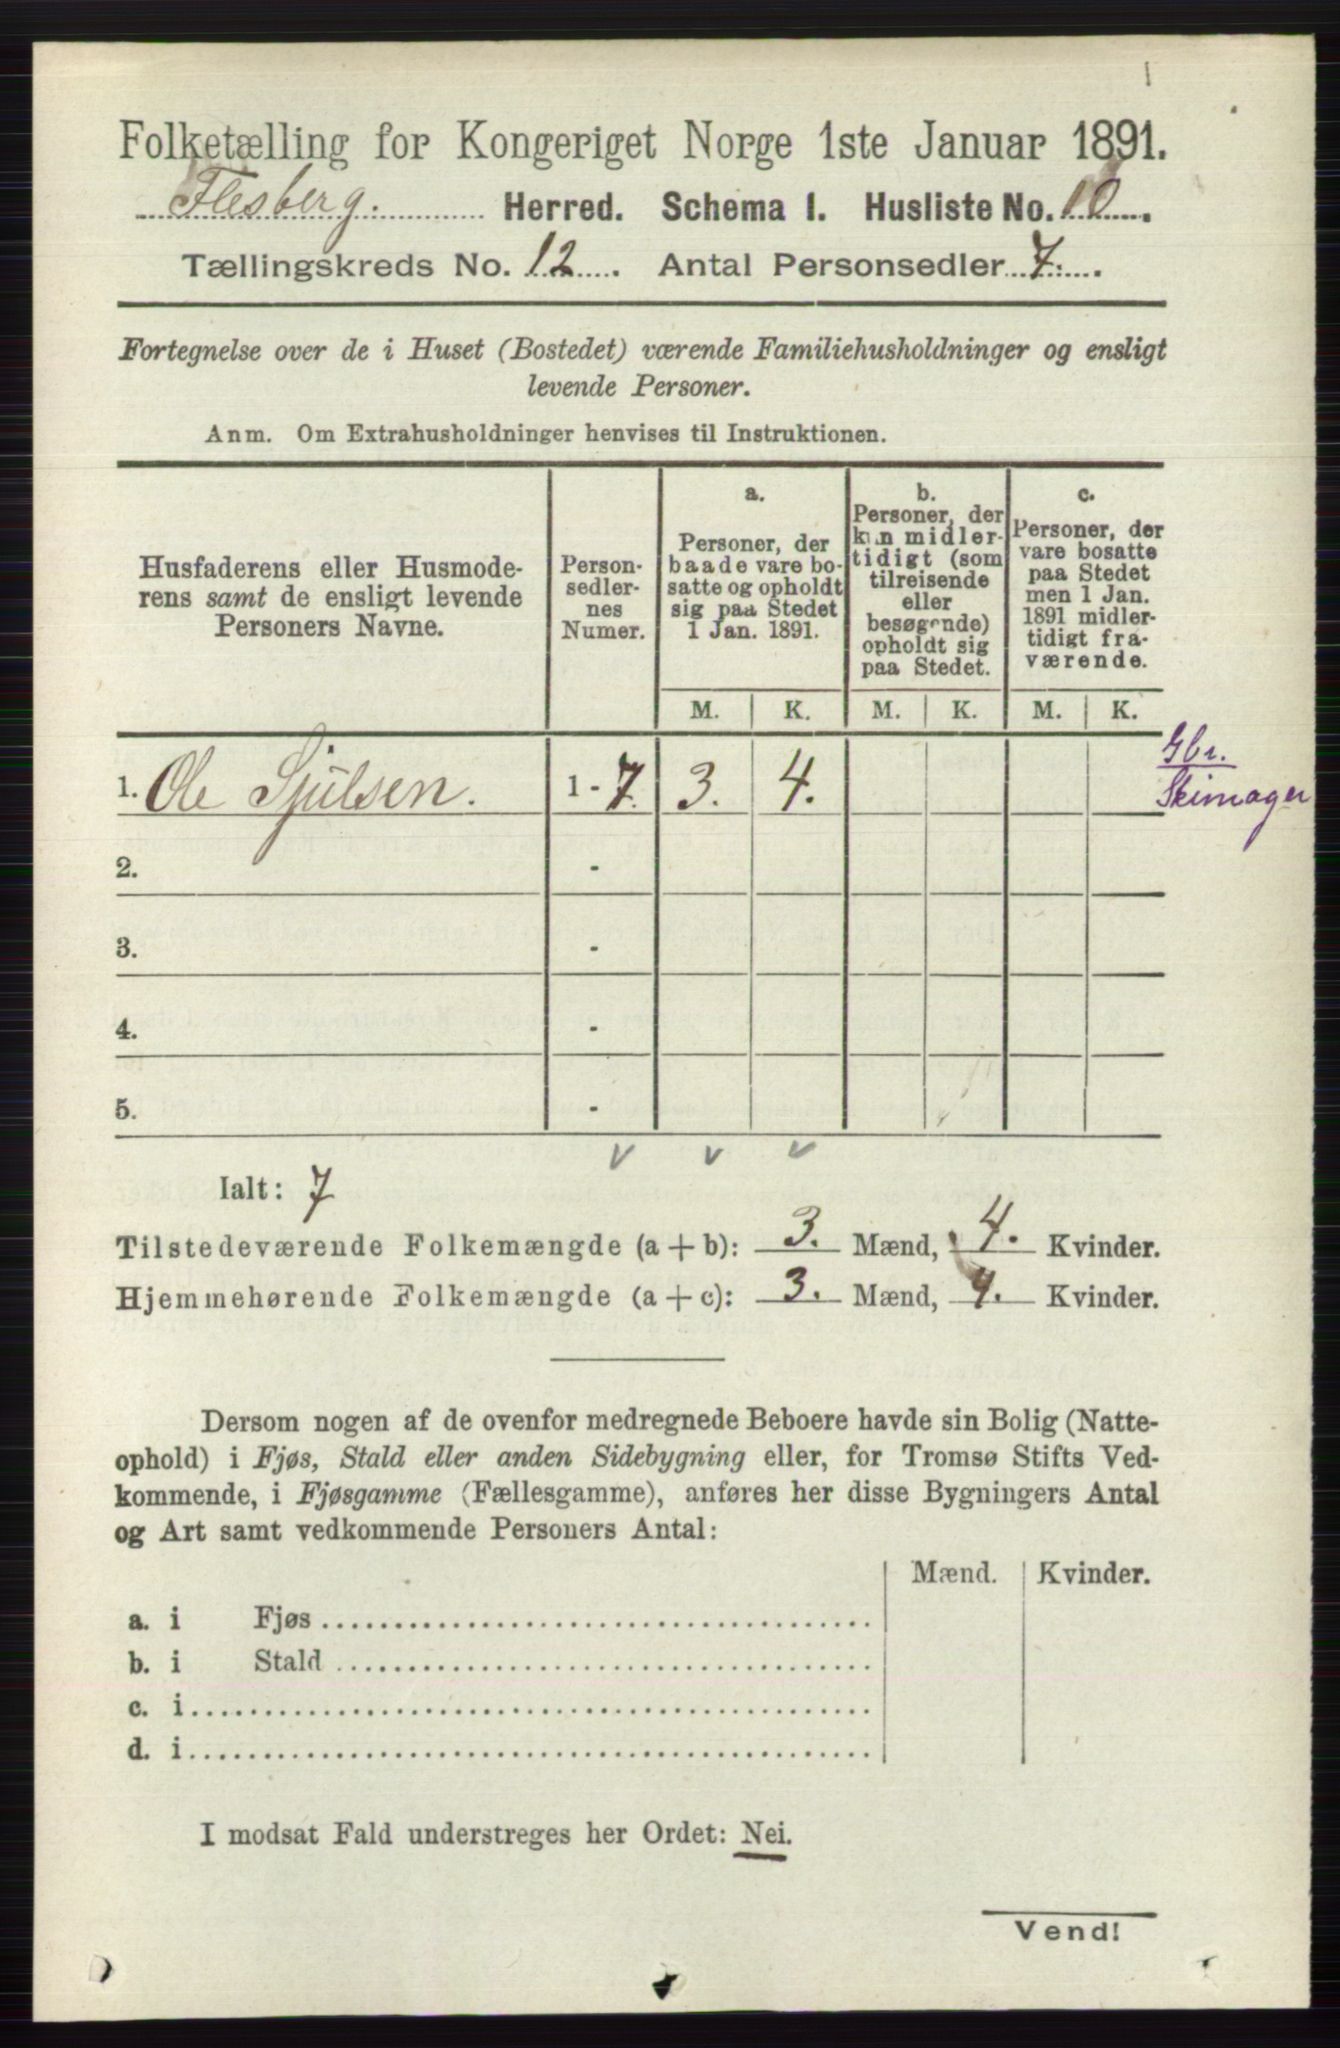 Folketælling for Kongeriget Norge 1ste Januar 1891.
Flesberg. Herred. Schema I. Husliste No. 10.
Tællingskreds No. 12. Antal Personsedler 7.
Fortegnelse over de i Huset (Bostedet) værende Familiehusholdninger og ensligt
levende Personer.
Anm. Om Extrahusholdninger henvises til Instruktionen.
Husfaderens eller Husmode-
rens samt de ensligt levende
Personers Navne.
Person-
sedler-
nes
Numer.
a.
Personer, der
baade vare bo-
satte og opholdt
sig paa Stedet
1 Jan. 1891.
b.
Personer, der
kun midler-
tidigt (som
tilreisende
eller
besøgende)
opholdt sig
paa Stedet.
c.
Personer, der
vare bosatte
paa Stedet
men 1 Jan.
1891 midler-
tidigt fra-
værende.
M. K. M. K. M. K.
1. Ole Sjulsen. 1 - 7. 3. 4.
Gbr.
Skinnager
2. -
3. -
4. -
5. -
Ialt: 7
Tilstedeværende Folkemængde (a + b): 3. Mænd, 4. Kvinder.
Hjemmehørende Folkemængde (a + c): 3. Mænd, 4. Kvinder.
Dersom nogen af de ovenfor medregnede Beboere havde sin Bolig (Natte-
ophold) i Fjøs, Stald eller anden Sidebygning eller, for Tromsø Stifts Ved-
kommende, i Fjøsgamme (Fællesgamme), anføres her disse Bygningers Antal
og Art samt vedkommende Personers Antal:
Mænd. Kvinder.
a. i Fjøs
b. i Stald
c. i
d. i
I modsat Fald understreges her Ordet: Nei.
Vend!